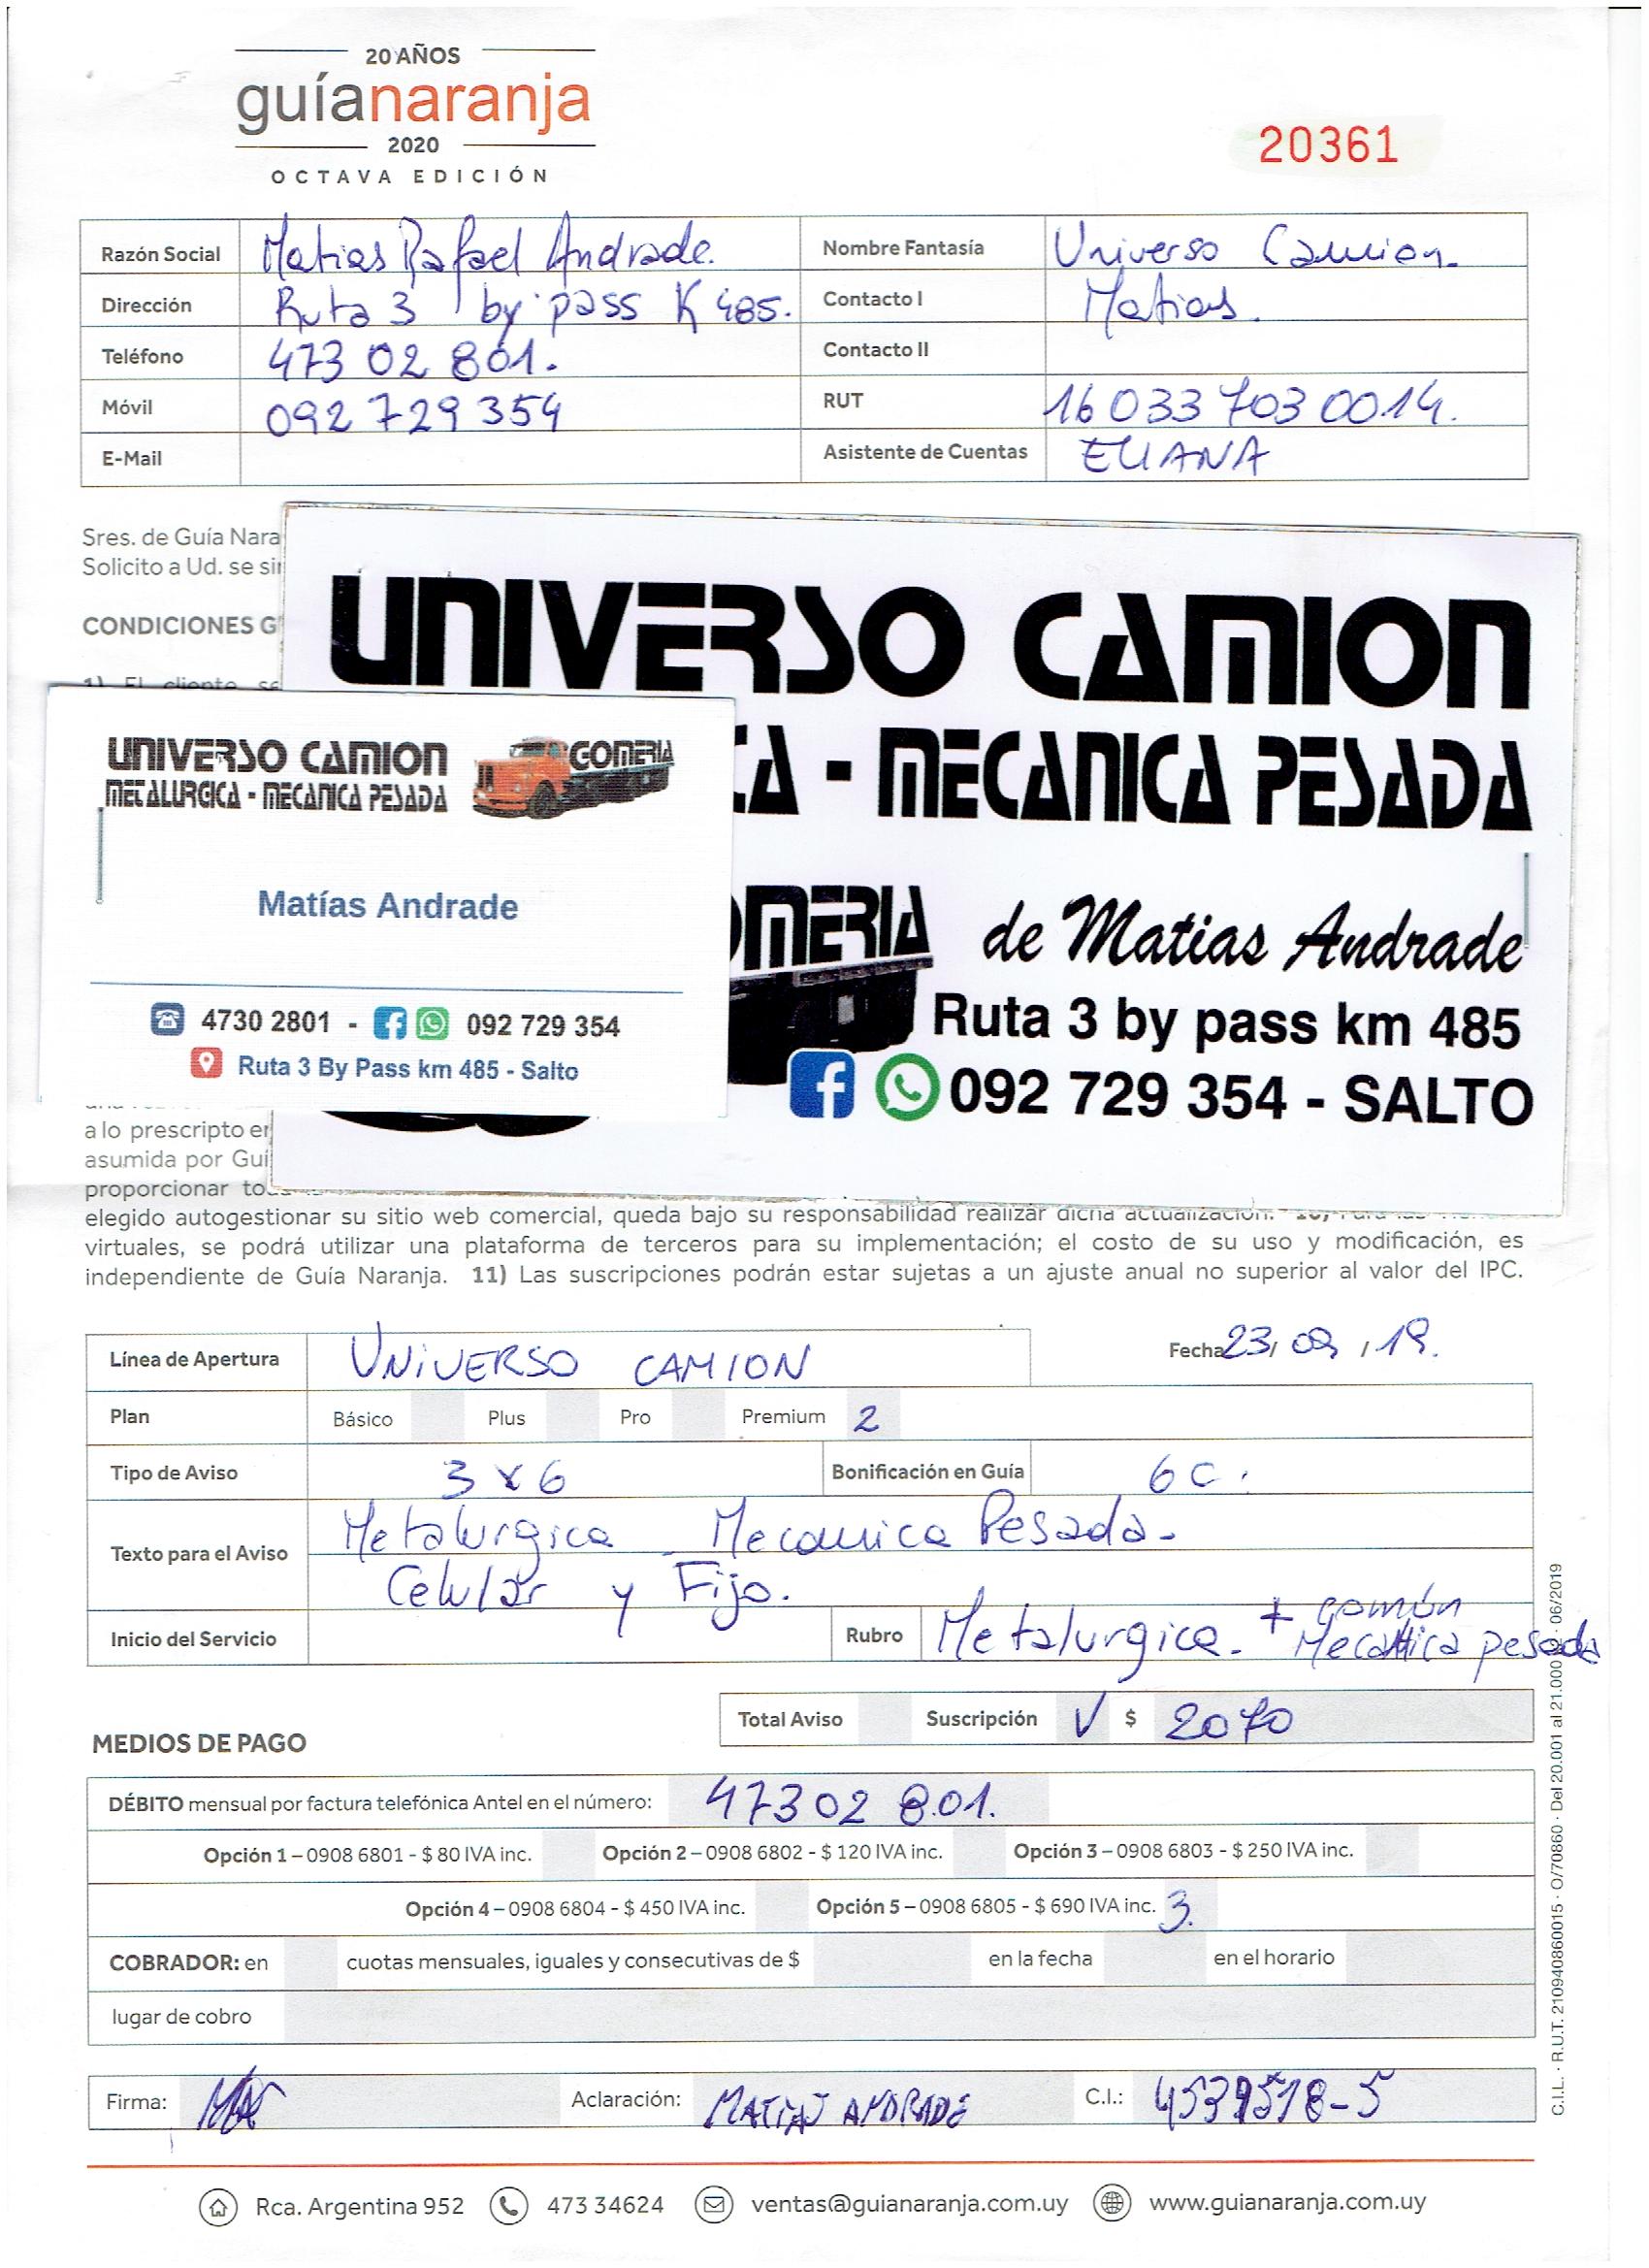 20 AÑOS
guíanaranja
2020
OCTAVA EDICIÓN
20361
Razón Social Matias Rafael Andrade. Nombre Fantasía Universo Camion.
Dirección Ruta 3 by pass K 485. Contacto I Matias.
Teléfono 473 02 801. Contacto II
Móvil 092 729 354 RUT 16 0337030014.
E-Mail Asistente de Cuentas ELIANA
Sres. de Guía Nara
Solicito a Ud. se sir
CONDICIONES G
1) El cliente se
UNIVERSO CAMION
CA - MECANICA PESADA
OMERIA de Matias Andrade
Ruta 3 by pass km 485
092 729 354 - SALTO
UNIVERSO CAMION GOMERIA
METALURGICA - MECANICA PESADA
Matías Andrade
4730 2801 - 092 729 354
Ruta 3 By Pass km 485 - Salto
a lo prescripto en
asumida por Guí
proporcionar
elegido autogestionar su sitio web comercial, queda bajo su responsabilidad realizar dicha actualización. 10) Para las
virtuales, se podrá utilizar una plataforma de terceros para su implementación; el costo de su uso y modificación, es
independiente de Guía Naranja. 11) Las suscripciones podrán estar sujetas a un ajuste anual no superior al valor del IPC.
Línea de Apertura UNIVERSO CAMION Fecha 23/ 09 / 19.
Plan Básico Plus Pro Premium 2
Tipo de Aviso 3 x 6 Bonificación en Guía 6 C.
Texto para el Aviso Metalurgica - Mecanica Pesada-
Celular y Fijo.
Inicio del Servicio Rubro Metalurgica. + común
Mecanica pesada
Total Aviso Suscripción V $ 2070
MEDIOS DE PAGO
DÉBITO mensual por factura telefónica Antel en el número: 473 02 801.
Opción 1 – 0908 6801 - $ 80 IVA inc. Opción 2 – 0908 6802 - $ 120 IVA inc. Opción 3 – 0908 6803 - $ 250 IVA inc.
Opción 4 – 0908 6804 - $ 450 IVA inc. Opción 5 – 0908 6805 - $ 690 IVA inc. 3.
COBRADOR: en cuotas mensuales, iguales y consecutivas de $ en la fecha en el horario
lugar de cobro
Firma: Aclaración: MATIAS ANDRADE C.I.: 4539518-5
Rca. Argentina 952 473 34624 ventas@guianaranja.com.uy www.guianaranja.com.uy
C.I.L. · R.U.T. 210940860015 · O/70860 · Del 20.001 al 21.000 · 06/2019